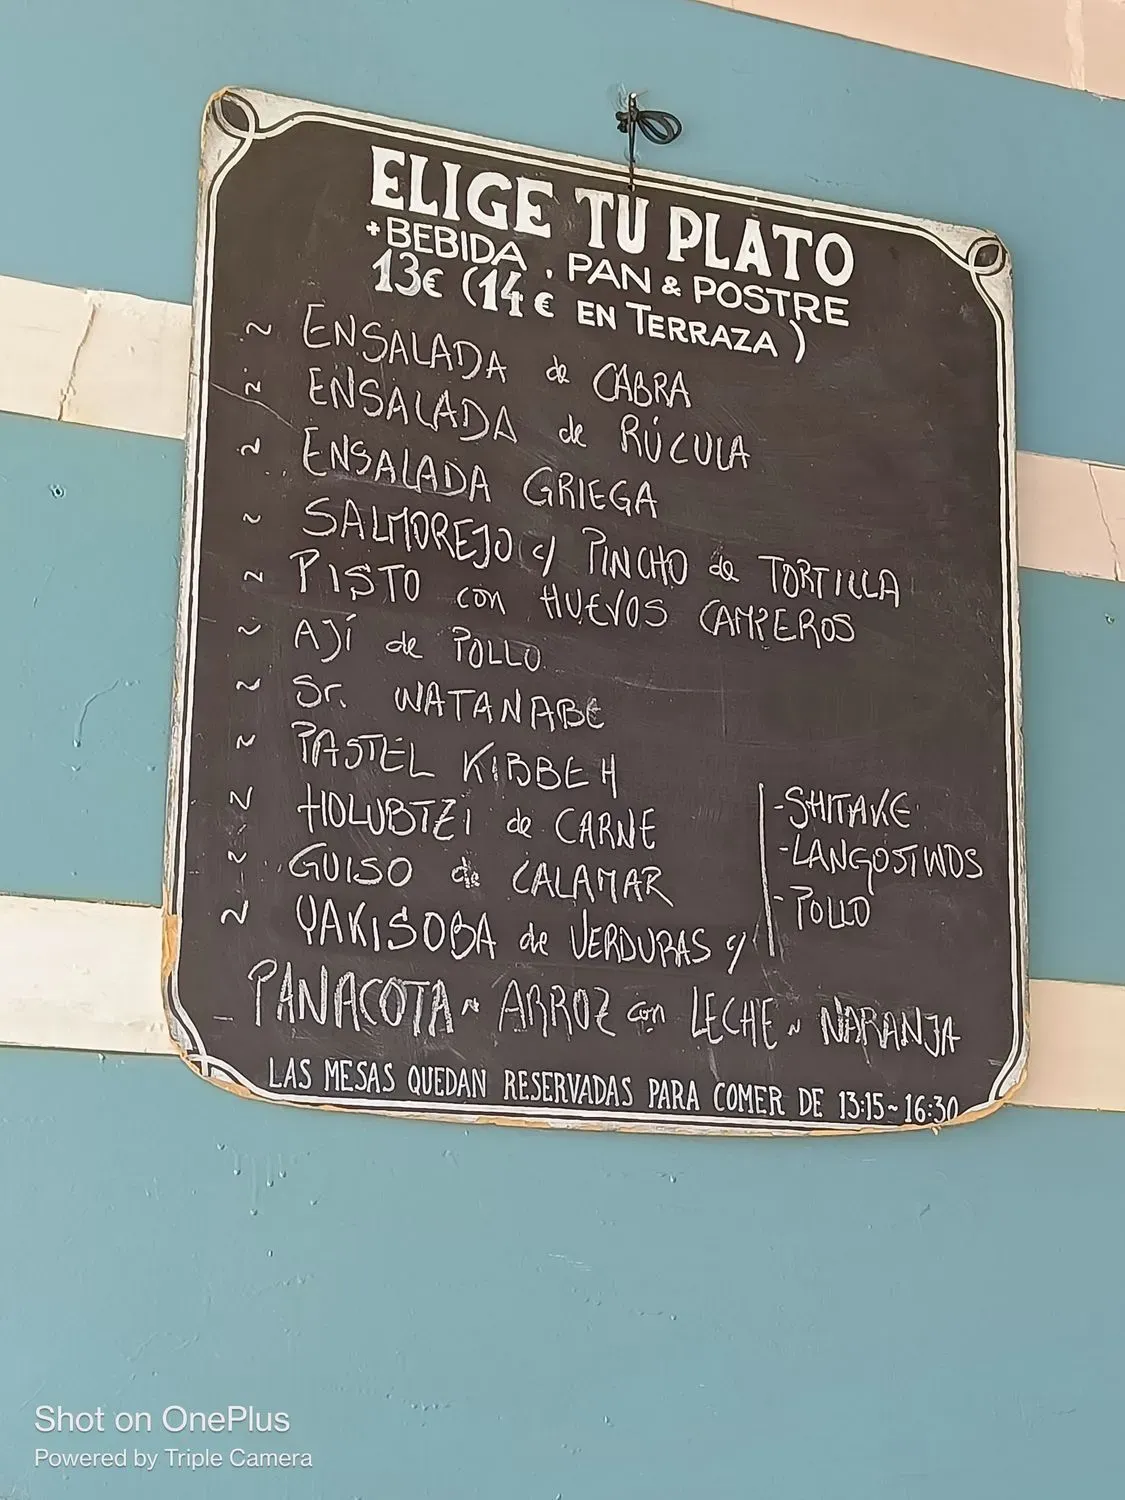 ELIGE TU PLATO
+BEBIDA, PAN & POSTRE
13€ (14€ EN TERRAZA)
~ ENSALADA de CABRA
~ ENSALADA de RÚCULA
~ ENSALADA GRIEGA
~ SALMOREJO c/ PINCHO de TORTILLA
~ PISTO con HUEVOS CAMPEROS
~ AJÍ de POLLO
~ Sr. WATANABE
~ PASTEL KIBBEH
~ HOLUBTZI de CARNE
~ GUISO de CALAMAR
~ YAKISOBA de VERDURAS y
-SHITAKE
-LANGOSTINOS
-POLLO
PANACOTA ~ ARROZ con LECHE ~ NARANJA
LAS MESAS QUEDAN RESERVADAS PARA COMER DE 13:15~16:30
Shot on OnePlus
Powered by Triple Camera